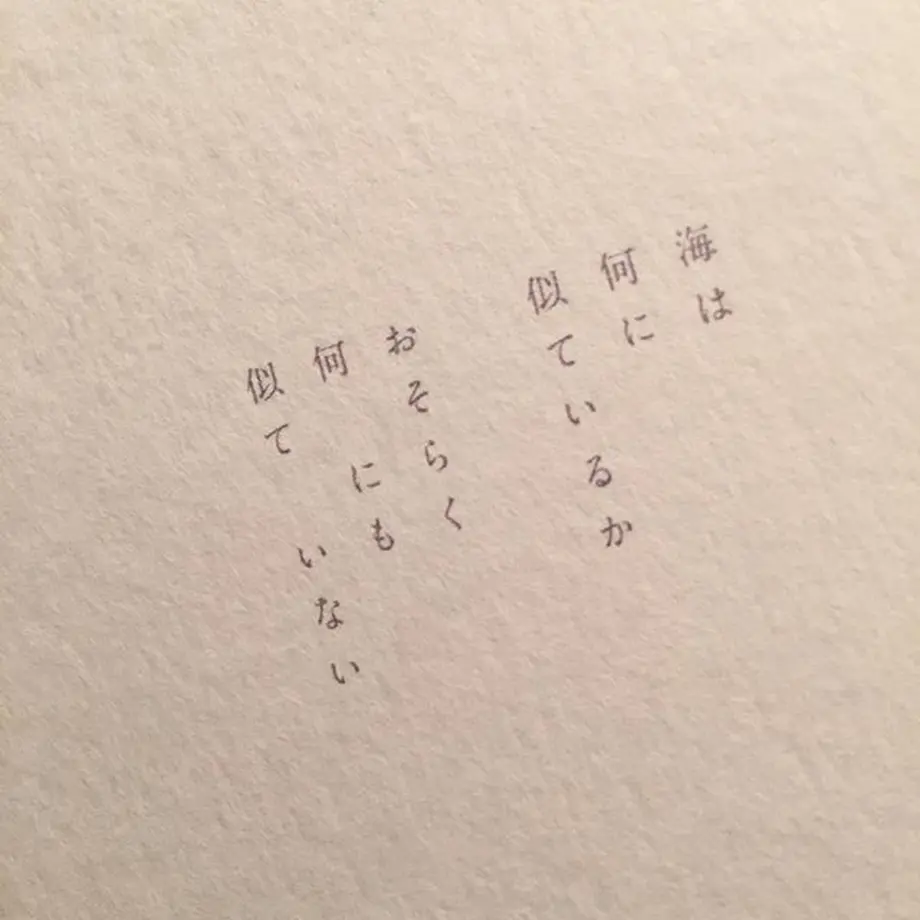 海は
何に
似ているか
おそらく
何にも
似ていない